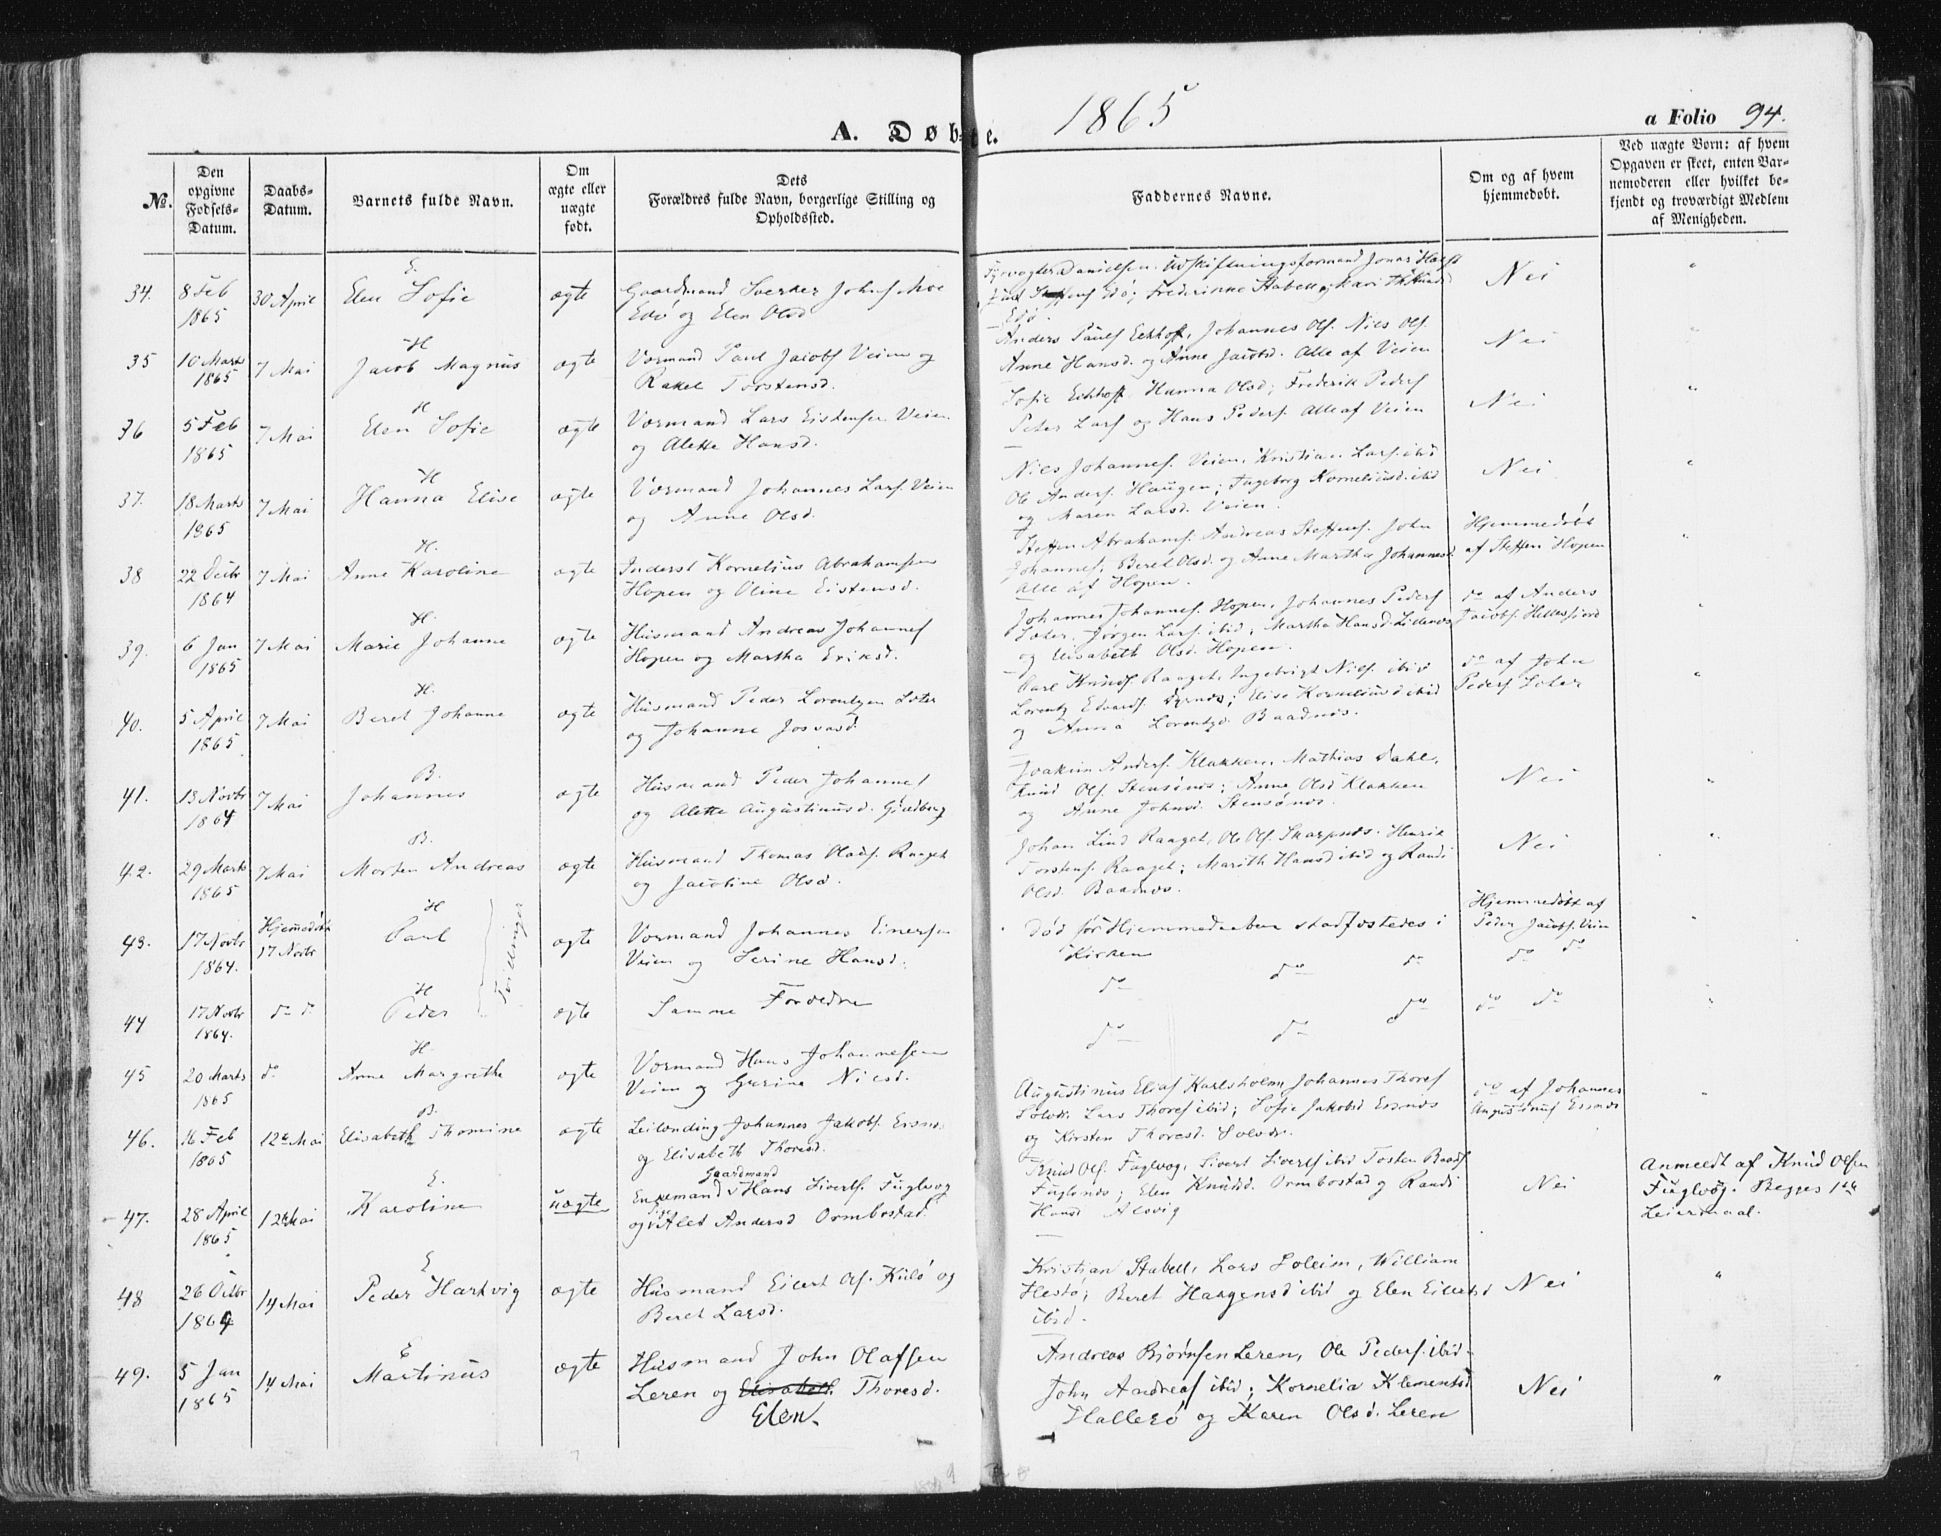 1865
A. Døbte.
a Folio 94.
No.
Den opgivne Fødsels-Datum.
Daabs-Datum.
Barnets fulde Navn.
Om ægte eller uægte født.
Dets Forældres fulde Navn, borgerlige Stilling og Opholdssted.
Faddernes Navne.
Om og af hvem hjemmedøbt.
Ved uægte Børn: af hvem Opgaven er skeet, enten Barnemoderen eller hvilket bekjendt og troværdigt Medlem af Menigheden.
34. 8 Feb 1865 30 April E. Elen Sofie ægte Gaardmand Sverker Johns Moe
Edø og Elen Olsd
Fyrvogter Danielsen. Udskiftningsformand Jonas
Edø; Frederikke Stabell og Kari
Edø. Nei "
35 10 Marts 1865 7 Mai H Jacob Magnus ægte Vormand Paul Jacobs Veien og
Rakel Torstensd.
Anders Pauls Eckhoff, Johannes Ols. Niels Ols.
Anne Hansd. og Anne Jacobsd. Alle af Veien Nei "
36 5 Feb 1865 7 Mai H Elen Sofie ægte Vormand Lars Eistensen Veien
og Alette Hansd.
Sofie Eckhoff, Hanna Olsd; Frederik Peders
Peter Lars og Hans Peders. Alle af Veien Nei "
37. 18 Marts 1865 7 Mai H Hanna Elise ægte Vormand Johannes Lars. Veien
og Anne Olsd.
Niels Johannes. Veien, Kristian Lars. ibid
Ole Anders. Haugen; Ingeborg Korneliusd. ibid
og Maren Larsd. Veien. Nei "
38 22 Octb 1864 7 Mai H. Anne Karoline ægte Inderst Kornelius Abrahamsen
Hopen og Oline Eistensd.
Steffen Abrahams. Andreas Steffens. John
Johannes, Beret Olsd. og Anne Martha Johannesd.
Alle af Hopen.
Hjemmedøbt
af Steffen Hopen "
39. 6 Jan 1865 7 Mai H. Marie Johanne ægte Husmand Andreas Johannes
Hopen og Martha Eriksd.
Johannes Johannes. Hopen, Johannes Peders
Sæter, Jørgen Lars. ibid; Martha Hansd.
og Elisabeth Olsd. Hopen.
do af Anders
Jacobs. "
40. 5 April 1865 7 Mai H. Beret Johanne ægte Husmand Peder Lorentzen Sæter
og Johanne Josvasd.
Carl Knuds Raaget, Ingebrigt Niels. ibid
Lorentz Edvards. Dyrnæs; Elise Korneliusd ibid
og Anna Lorentzd. Baadnæs.
do af John
Peders Sæter "
41. 13 Novbr 1864 7 Mai B. Johannes ægte Husmand Peder Johannes
og Alette Augustinusd.
Joakim Anders. Klakken, Mathias Dahl,
Knud Ols. Stensønæs; Anne Olsd Klakken
og Anne Johnsd. Stensønæs. Nei "
42. 29 Marts 1865 7 Mai B. Morten Andreas ægte Husmand Thomas Olais. Raaget
og Jacobine Olsd.
Johan Lind Raaget, Ole Ols. Skarpnæs. Henrik
Torstens. Raaget; Marith Hansd ibid og Randi
Olsd. Baadnæs. Nei "
43. 17 Novbr 1864. Hjemmedøbt 17 Novbr H Paul Tvillinger ægte Vormand Johannes Einersen
Veien og Serine Hansd.
Død før Hjemmedaaben stadfæstedes i
Kirken
Hjemmedøbt af
Peder Jacobs. Veien "
44 17 Novbr 1864. do do H Peder ægte Samme Forældre do do do do do "
45 20 Marts 1865 do H. Anne Margrethe ægte Vormand Hans Johannesen
Veien og Gurine Nielsd. do do do do do
46. 16 Feb 1865 12te Mai B. Elisabeth Thomine ægte Leilænding Johannes Jakobs. Ersnæs
og Elisabeth Thoresd.
Augustinus Elias Karlsholm, Johannes Thores
Lars Thores ibid; Sofie Jakobsd Ersnæs
og Kirsten Thoresd.
do af Johannes
Augustinus Ersnæs "
47. 28 April 1865 12te Mai E. Karoline uægte Gaardmand
Enkemand Hans Siverts. Fuglvog
og Pige Alet Andersd Ormbostad.
Knud Ols. Fuglvog, Sivert Siverts ibid Tosten
Elen Knudsd. Ormbostad og Randi
Hansd Nei
Anmeldt af Knud Olsen
Fuglvog. Begges 1ste
Leiermaal.
48 26 Octbr 1864 14 Mai E Peder Hartvig ægte Husmand Eilert Ols. Kulø og
Beret Larsd.
Kristian Stabell, Lars Soleim, William
Hestø; Beret Haagensd ibid og Elen Eilertsd
ibid. Nei "
49. 5 Jan 1865 14 Mai E Martinus ægte Husmand John Olafsen
Leren og Elisabeth Thoresd.
Elen.
Andreas Bjørnsen Leren, Ole Peders. ibid.
John Andreas ibid; Kornelia Klementsd
og Karen Olsd. Leren Nei "